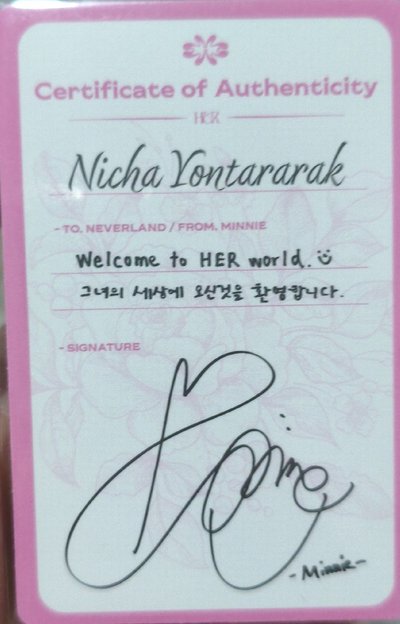 Certificate of Authenticity
HER
Nicha Yontararak
- TO. NEVERLAND / FROM. MINNIE
Welcome to HER world.
그녀의 세상에 오신것을 환영합니다.
- SIGNATURE
Minnie
- Minnie -